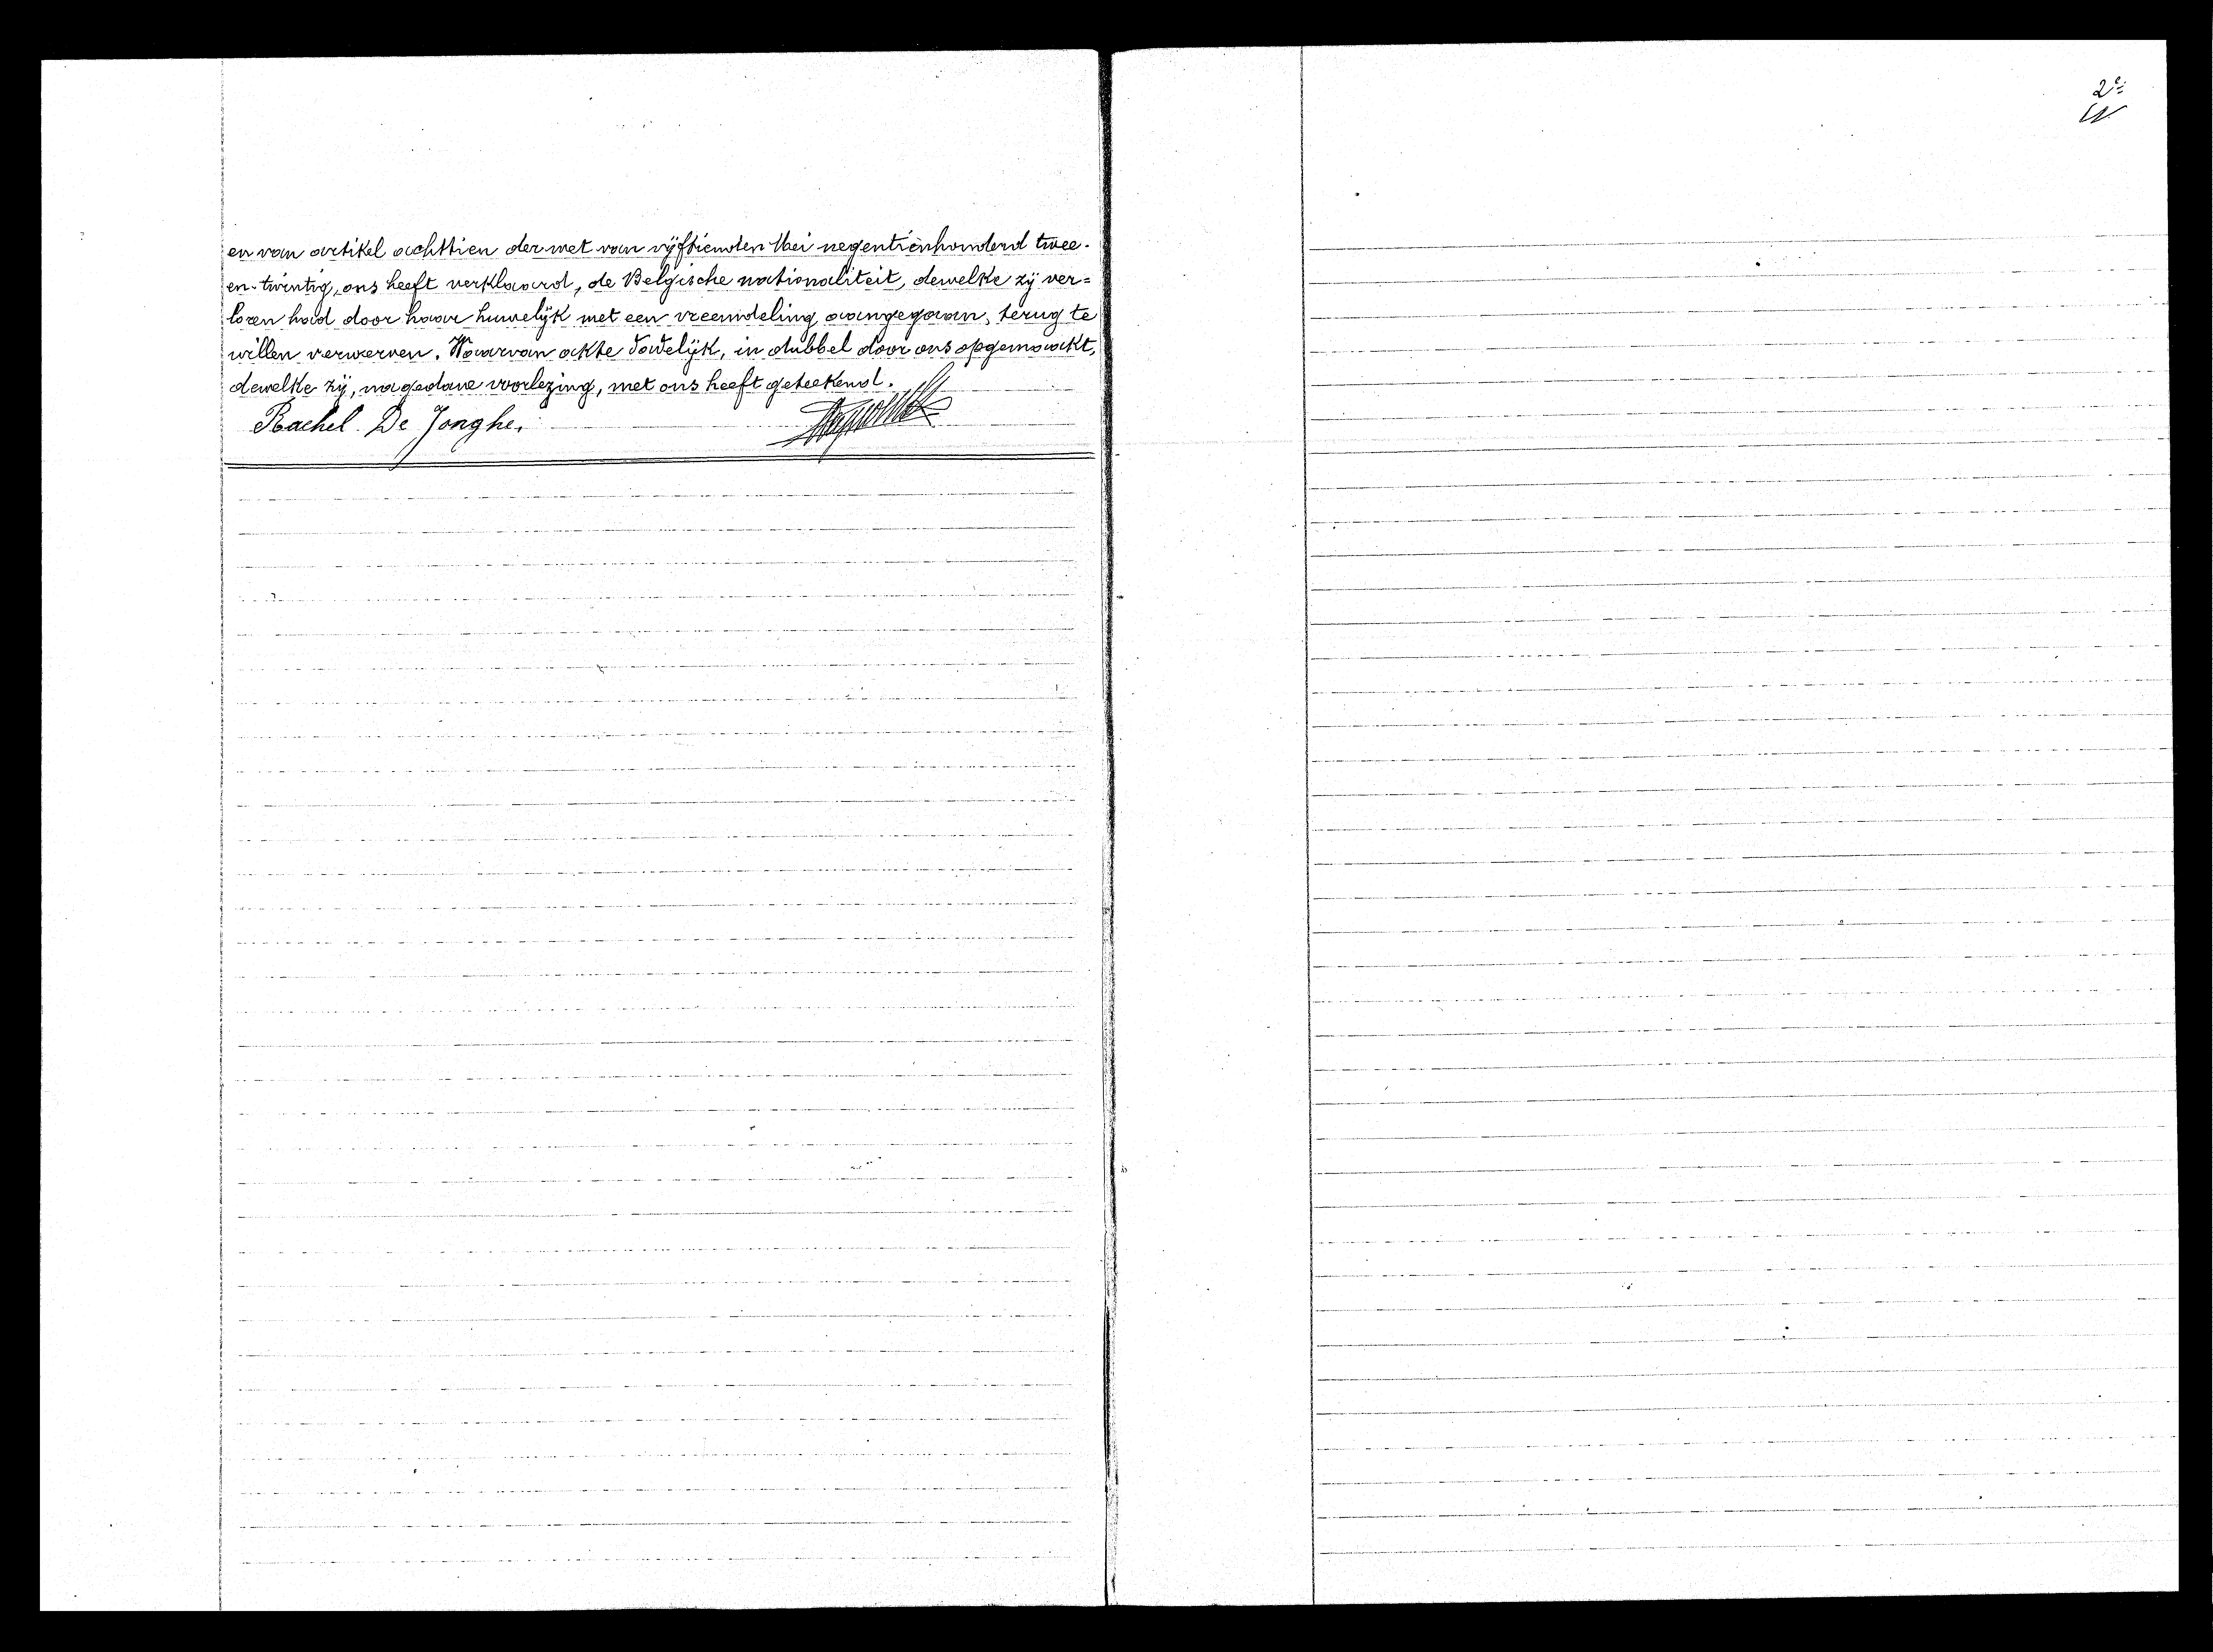 en van artikel achttien der wet van vijftienden Mei negentienhonderd twee-
en-twintig, ons heeft verklaard, de Belgische nationaliteit, dewelke zij ver=
loren had door haar huwelijk met een vreemdeling aangegaan, terug te
willen verwerven. Waarvan akte dadelijk, in dubbel door ons opgemaakt,
dewelke zij, na gedane voorlezing, met ons heeft geteekend.
Rachel De Jonghe.
2e